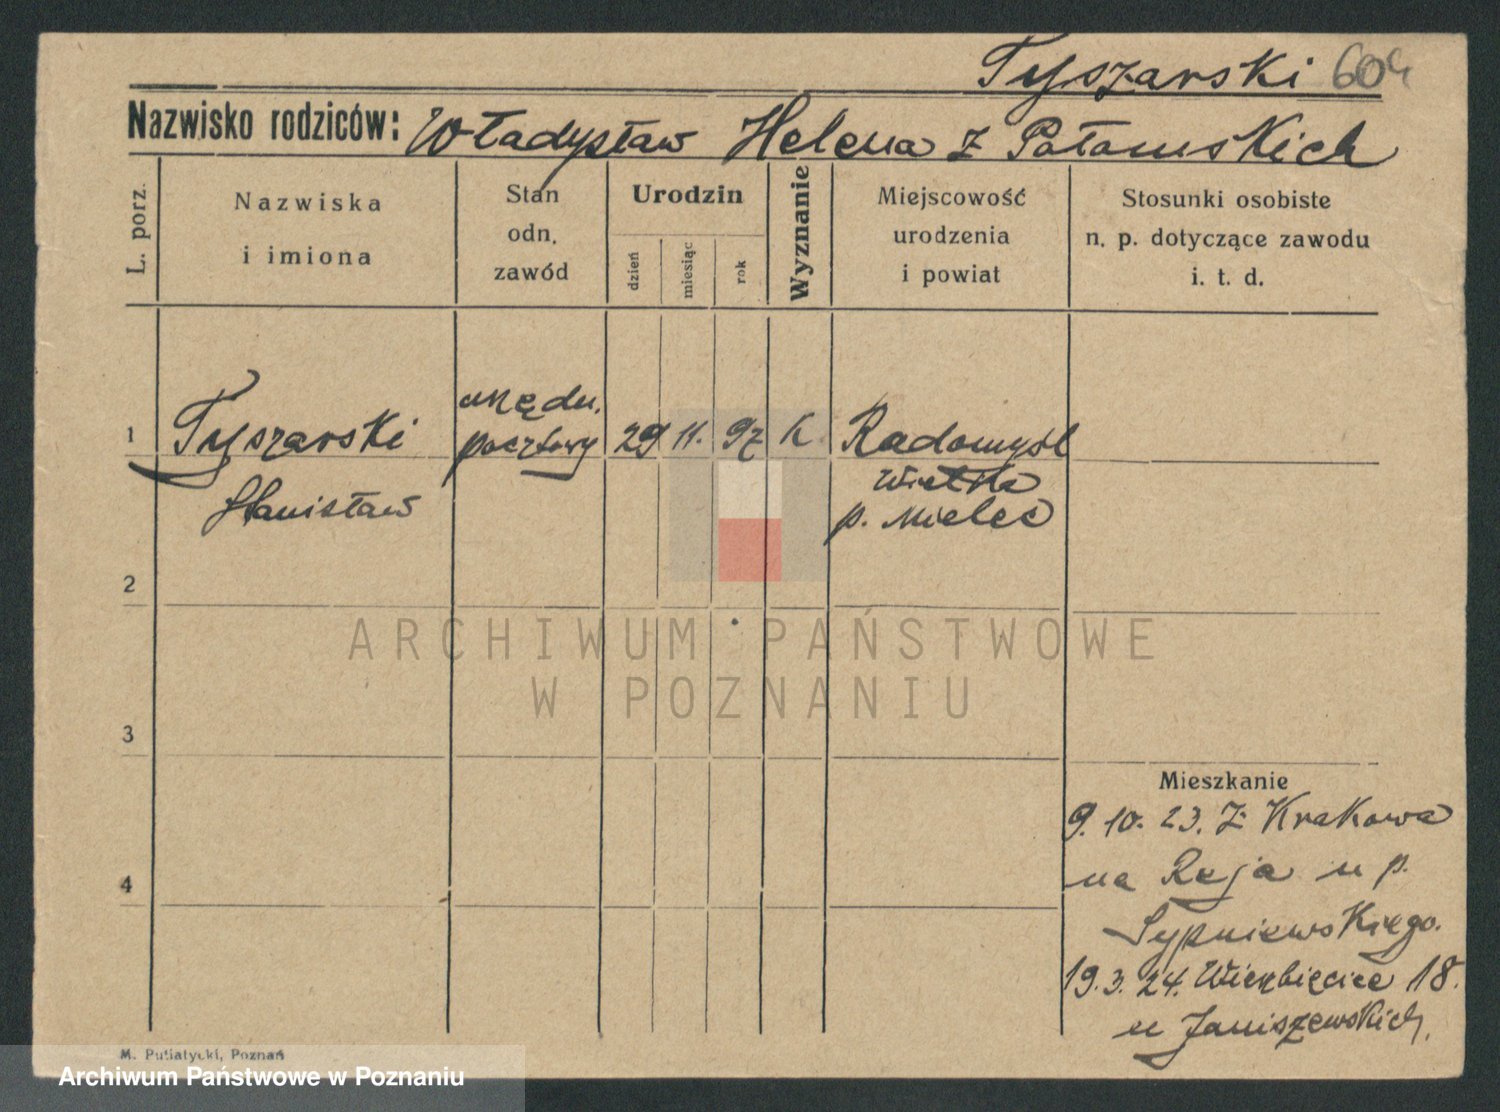 Tyszarski 604
Nazwisko rodziców: Władysław Helena z Potomskich
L. porz.
Nazwiska
i imiona
Stan
odn.
zawód
Urodzin
dzień
miesiąc
rok
Wyznanie
Miejscowość
urodzenia
i powiat
Stosunki osobiste
n. p. dotyczące zawodu
i. t. d.
1
Tyszarski
Stanisław
urzędn.
pocztowy
29 11. 97 k
Radomyśl
Wielka
p. Mielec
2
3
4
ARCHIWUM PAŃSTWOWE
W POZNANIU
Mieszkanie
9. 10. 23. Z Krakowa
na Reja u p.
Sypniewskiego.
19. 3. 24. Wierzbięcice 18.
u Janiszewskich.
M. Putiatycki, Poznań
Archiwum Państwowe w Poznaniu